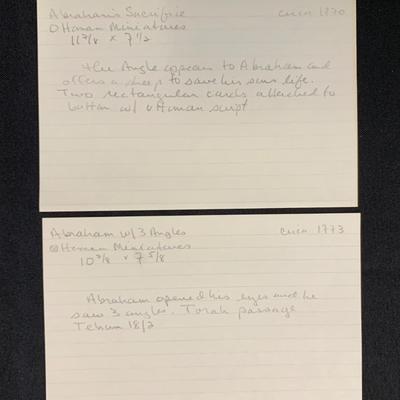 Abraham's Sacrifice circa 1770
Ottoman Miniatures
11 3/8 x 7 1/2
the Angle appears to Abraham and
offers a sheep to save his sons life.
Two rectangular cards attached to
bottom w/ Ottoman script
Abraham w/ 3 Angles circa 1773
Ottoman Miniatures
10 3/8 x 7 5/8
Abraham opened his eyes and he
saw 3 angles. Torah passage
18/2